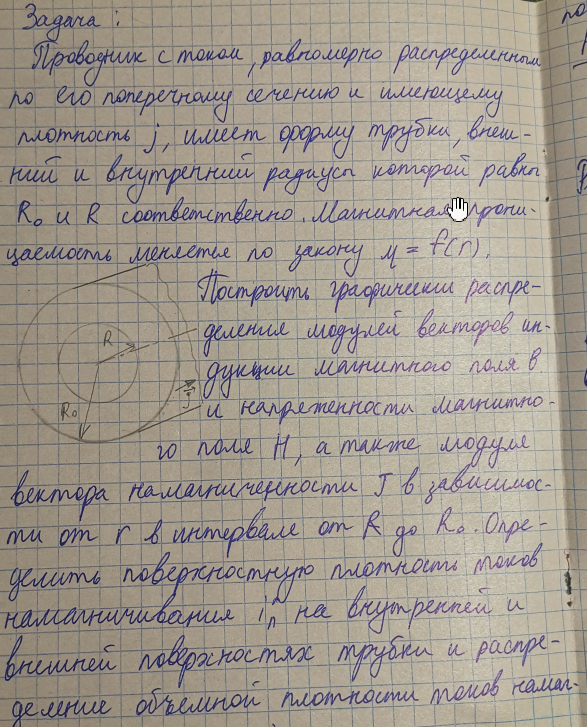 Задача:
Проводник с током, равномерно распределенным
по его поперечному сечению и имеющему
плотность j, имеет форму трубки, внеш-
ний и внутренний радиусы которой равны
R₀ и R соответственно. Магнитная прони-
цаемость меняется по закону μ = f(r).
Построить графически распре-
деления модулей векторов ин-
дукции магнитного поля B
и напряженности магнитно-
го поля H, а также модуля
вектора намагниченности J в зависимос-
ти от r в интервале от R до R₀. Опре-
делить поверхностную плотность токов
намагничивания i'ₙ на внутренней и
внешней поверхностях трубки и распре-
деление объемной плотности токов намаг-
R
R₀
j
по